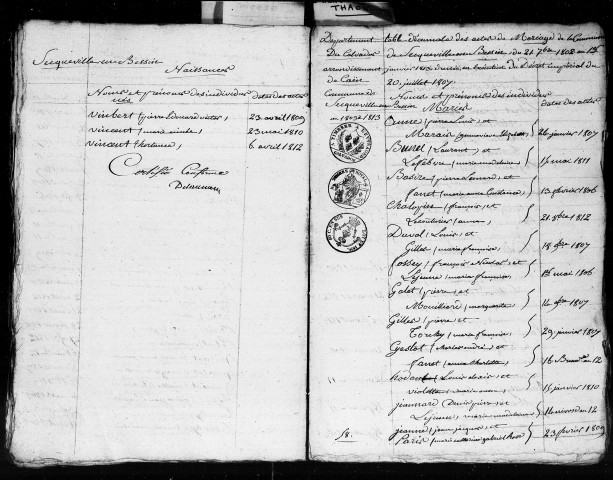 Secqueville en Bessin
Naissances
Noms et prénoms des individus nés
dates des actes
vimbert (pierre Edouard victor)
23 avril 1809
vincent (marie aimée)
23 mai 1810
vincent (hortense)
6 avril 1812
Certifié Conforme
Delaunay
THAO
Département
Du Calvados
arrondissement
de Caen
Commune de
Secqueville en Bessin
an 1802 à 1813
table décennale des actes de Mariage de la Commune
de Secqueville en Bessin du 21 7bre 1802 au 1er
janvier 1813 dressée en exécution du Décret impérial du
20 juillet 1807.
Noms et prénoms des individus
Mariés
dates des actes
(pierre Louis) et
Marais (geneviève)
26 janvier 1807
Bunel (Laurent) et
Lefebvre (marie madeleine)
15 mai 1811
Basire (pierre Léonard) et
fanet (marie anne Constance)
13 février 1806
(françois) et
Lecouturier (anne)
21 8bre 1812
Duval (Louis) et
Gilles (marie françoise)
18 9bre 1807
fossey (françois Nicolas) et
Lejeune (marie françoise)
1er mai 1806
Galet (pierre) et
Mouillard (marguerite)
14 9bre 1807
Gilles (pierre) et
(marie françoise)
29 janvier 1807
Gastot (charles andré) et
fanet (anne charlotte)
16 Brumaire an 12
(Louis alexis) et
violette (marie anne)
15 janvier 1810
jeannard (Denis pierre) et
Lejeune (marie madeleine)
14 nivose an 12
jeanne (jean jacques) et
Paris (marie catherine gabriel Rose)
23 février 1809
58.